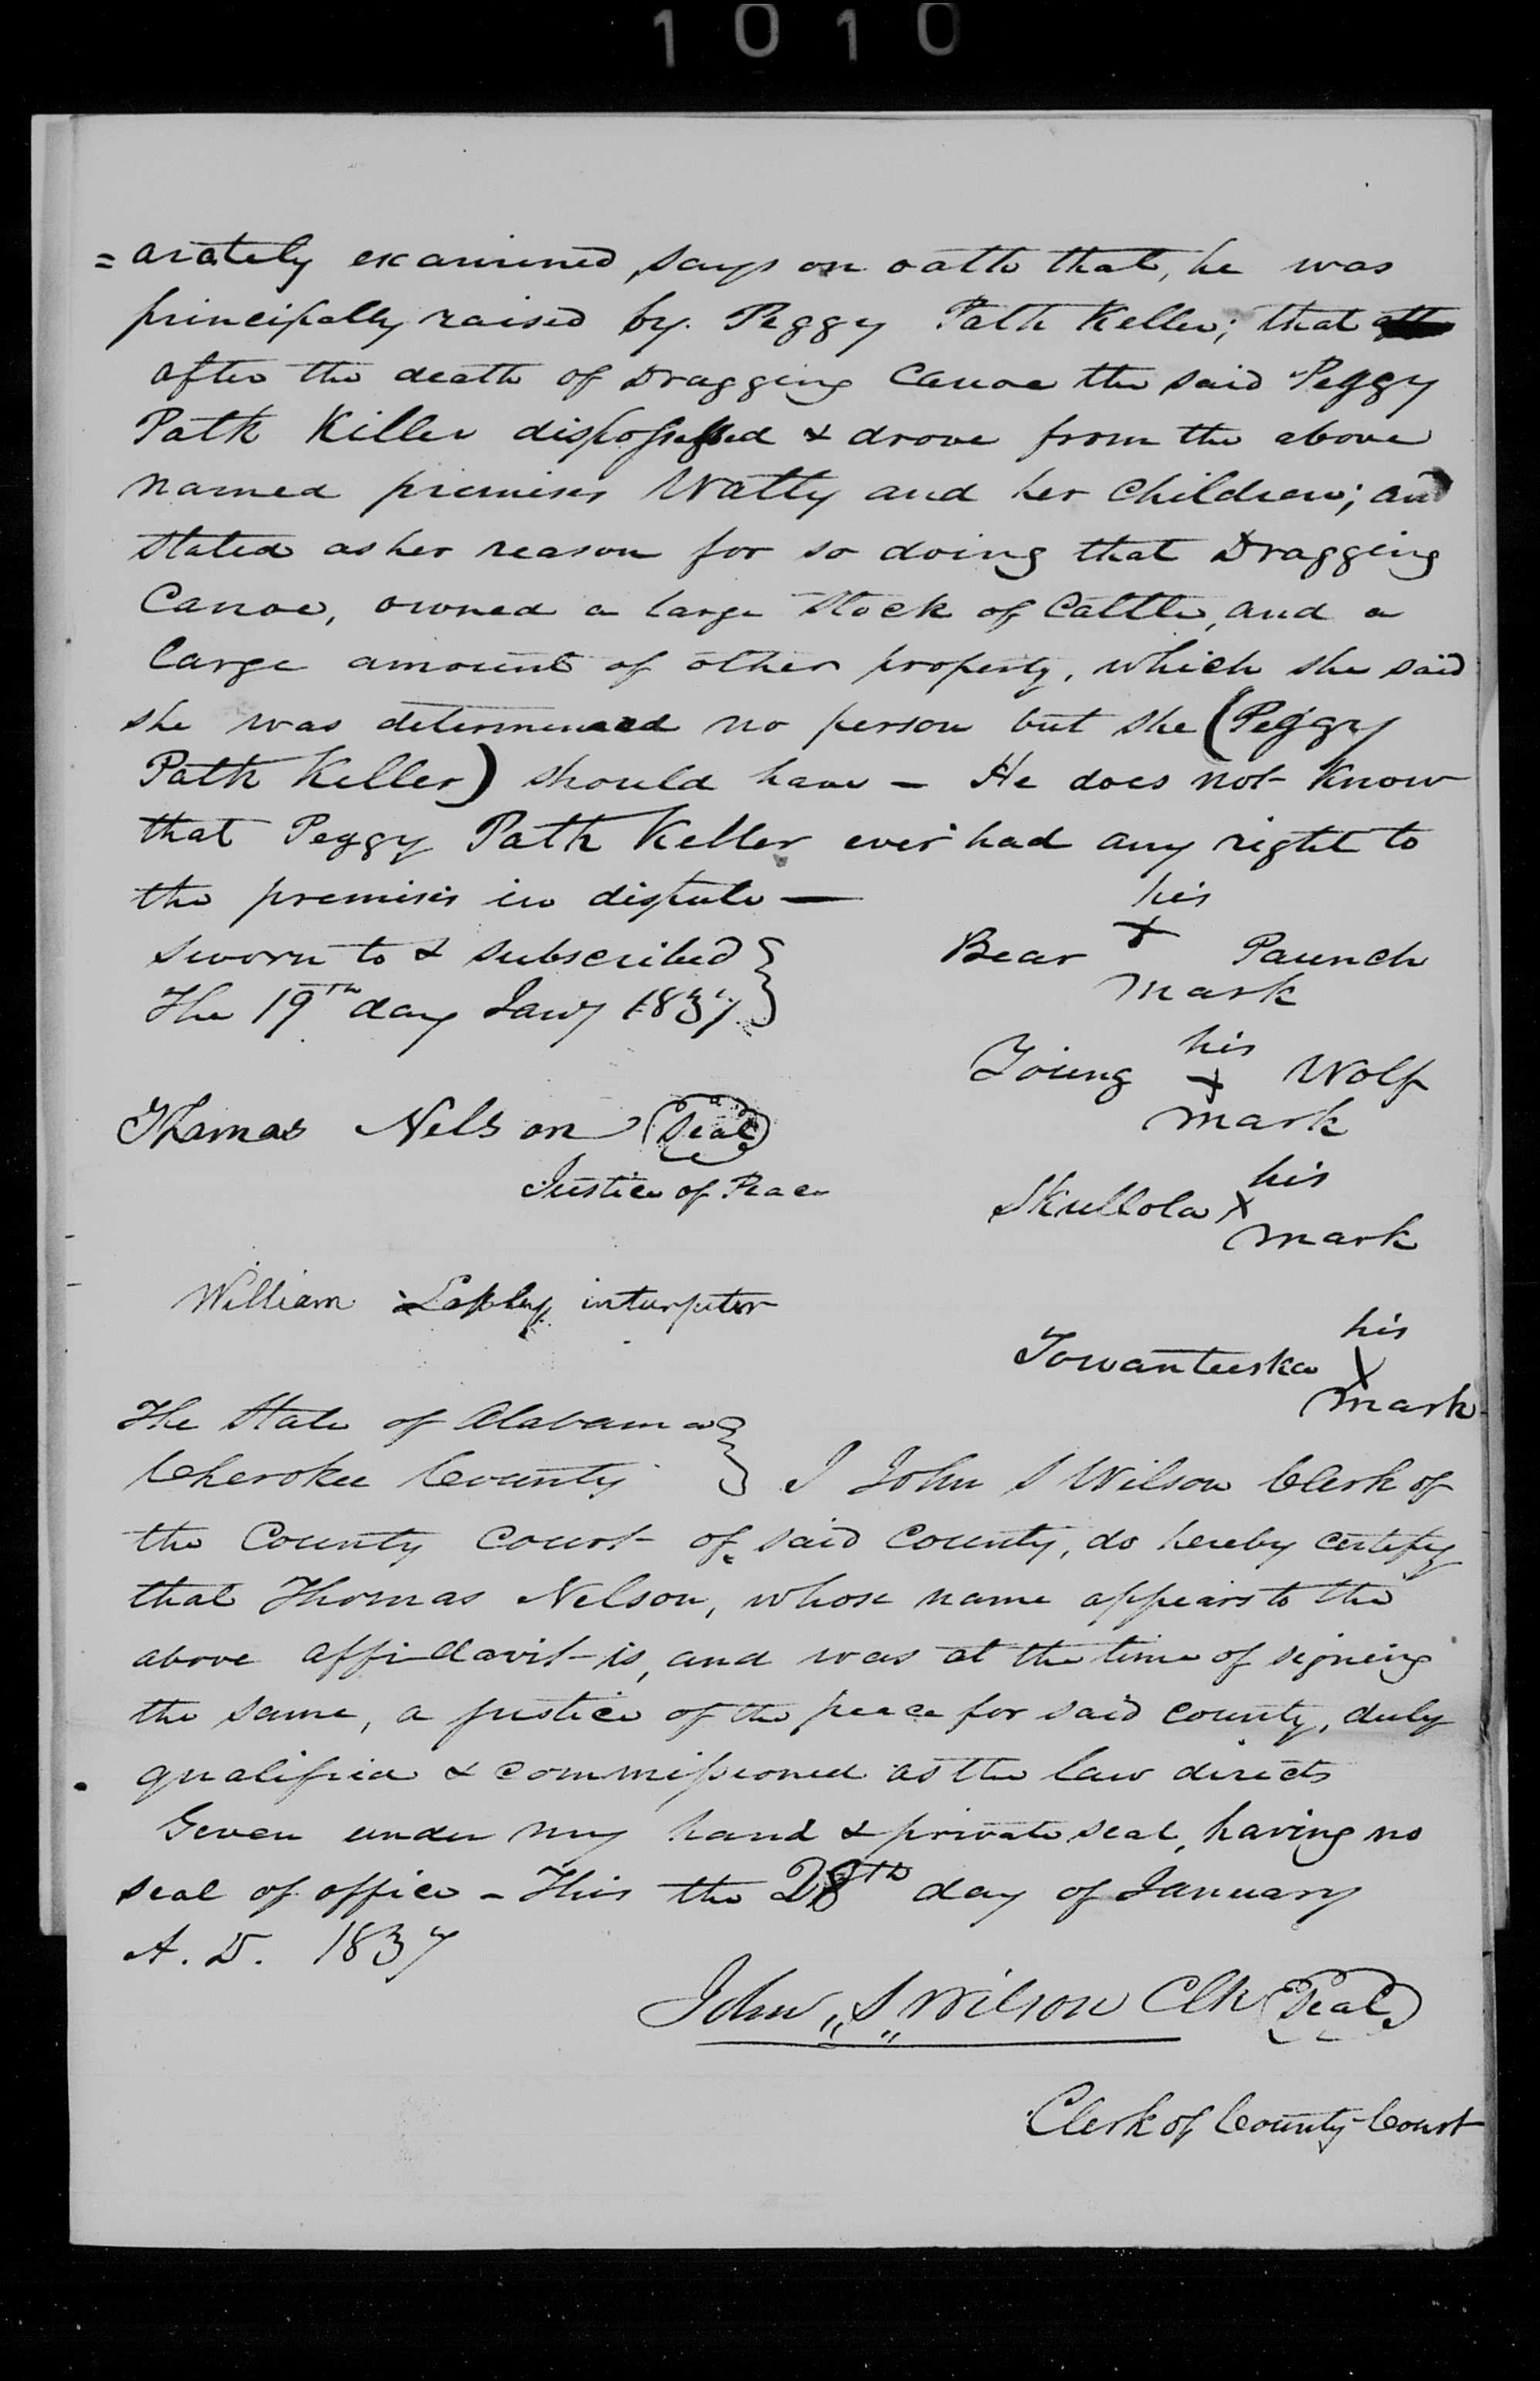 1010
=arately examined, says on oath that, he was
principally raised by Peggy Path Keller; that
after the death of Dragging Canoe the said Peggy
Path Killer dispossessed & drove from the above
named premises Watty and her Children; and
stated as her reason for so doing that Dragging
Canoe, owned a large stock of Cattle, and a
large amount of other property, which she said
she was determened no person but she (Peggy
Path Keller) should have - He does not know
that Peggy Path Keller ever had any right to
the premises in dispute —
his
Bear X Paunch
mark
sworn to & subscribed
The 19th day Jany 1837
his
Young X Wolf
mark
Thomas Nelson (Seal)
Justice of Peace
his
Skullola X
mark
William interpeter
his
Towanteeska X
mark
The State of Alabama
Cherokee County } I John S Wilson Clerk of
the County Court of said County, do hereby certify
that Thomas Nelson, whose name appears to the
above affidavit is, and was at the time of signing
the same, a justice of the peace for said County, duly
qualified & commissioned as the law directs
Given under my hand & private seal, having no
seal of office - This the 28th day of January
A. D. 1837
John "S" Wilson Clk (Seal)
Clerk of County Court